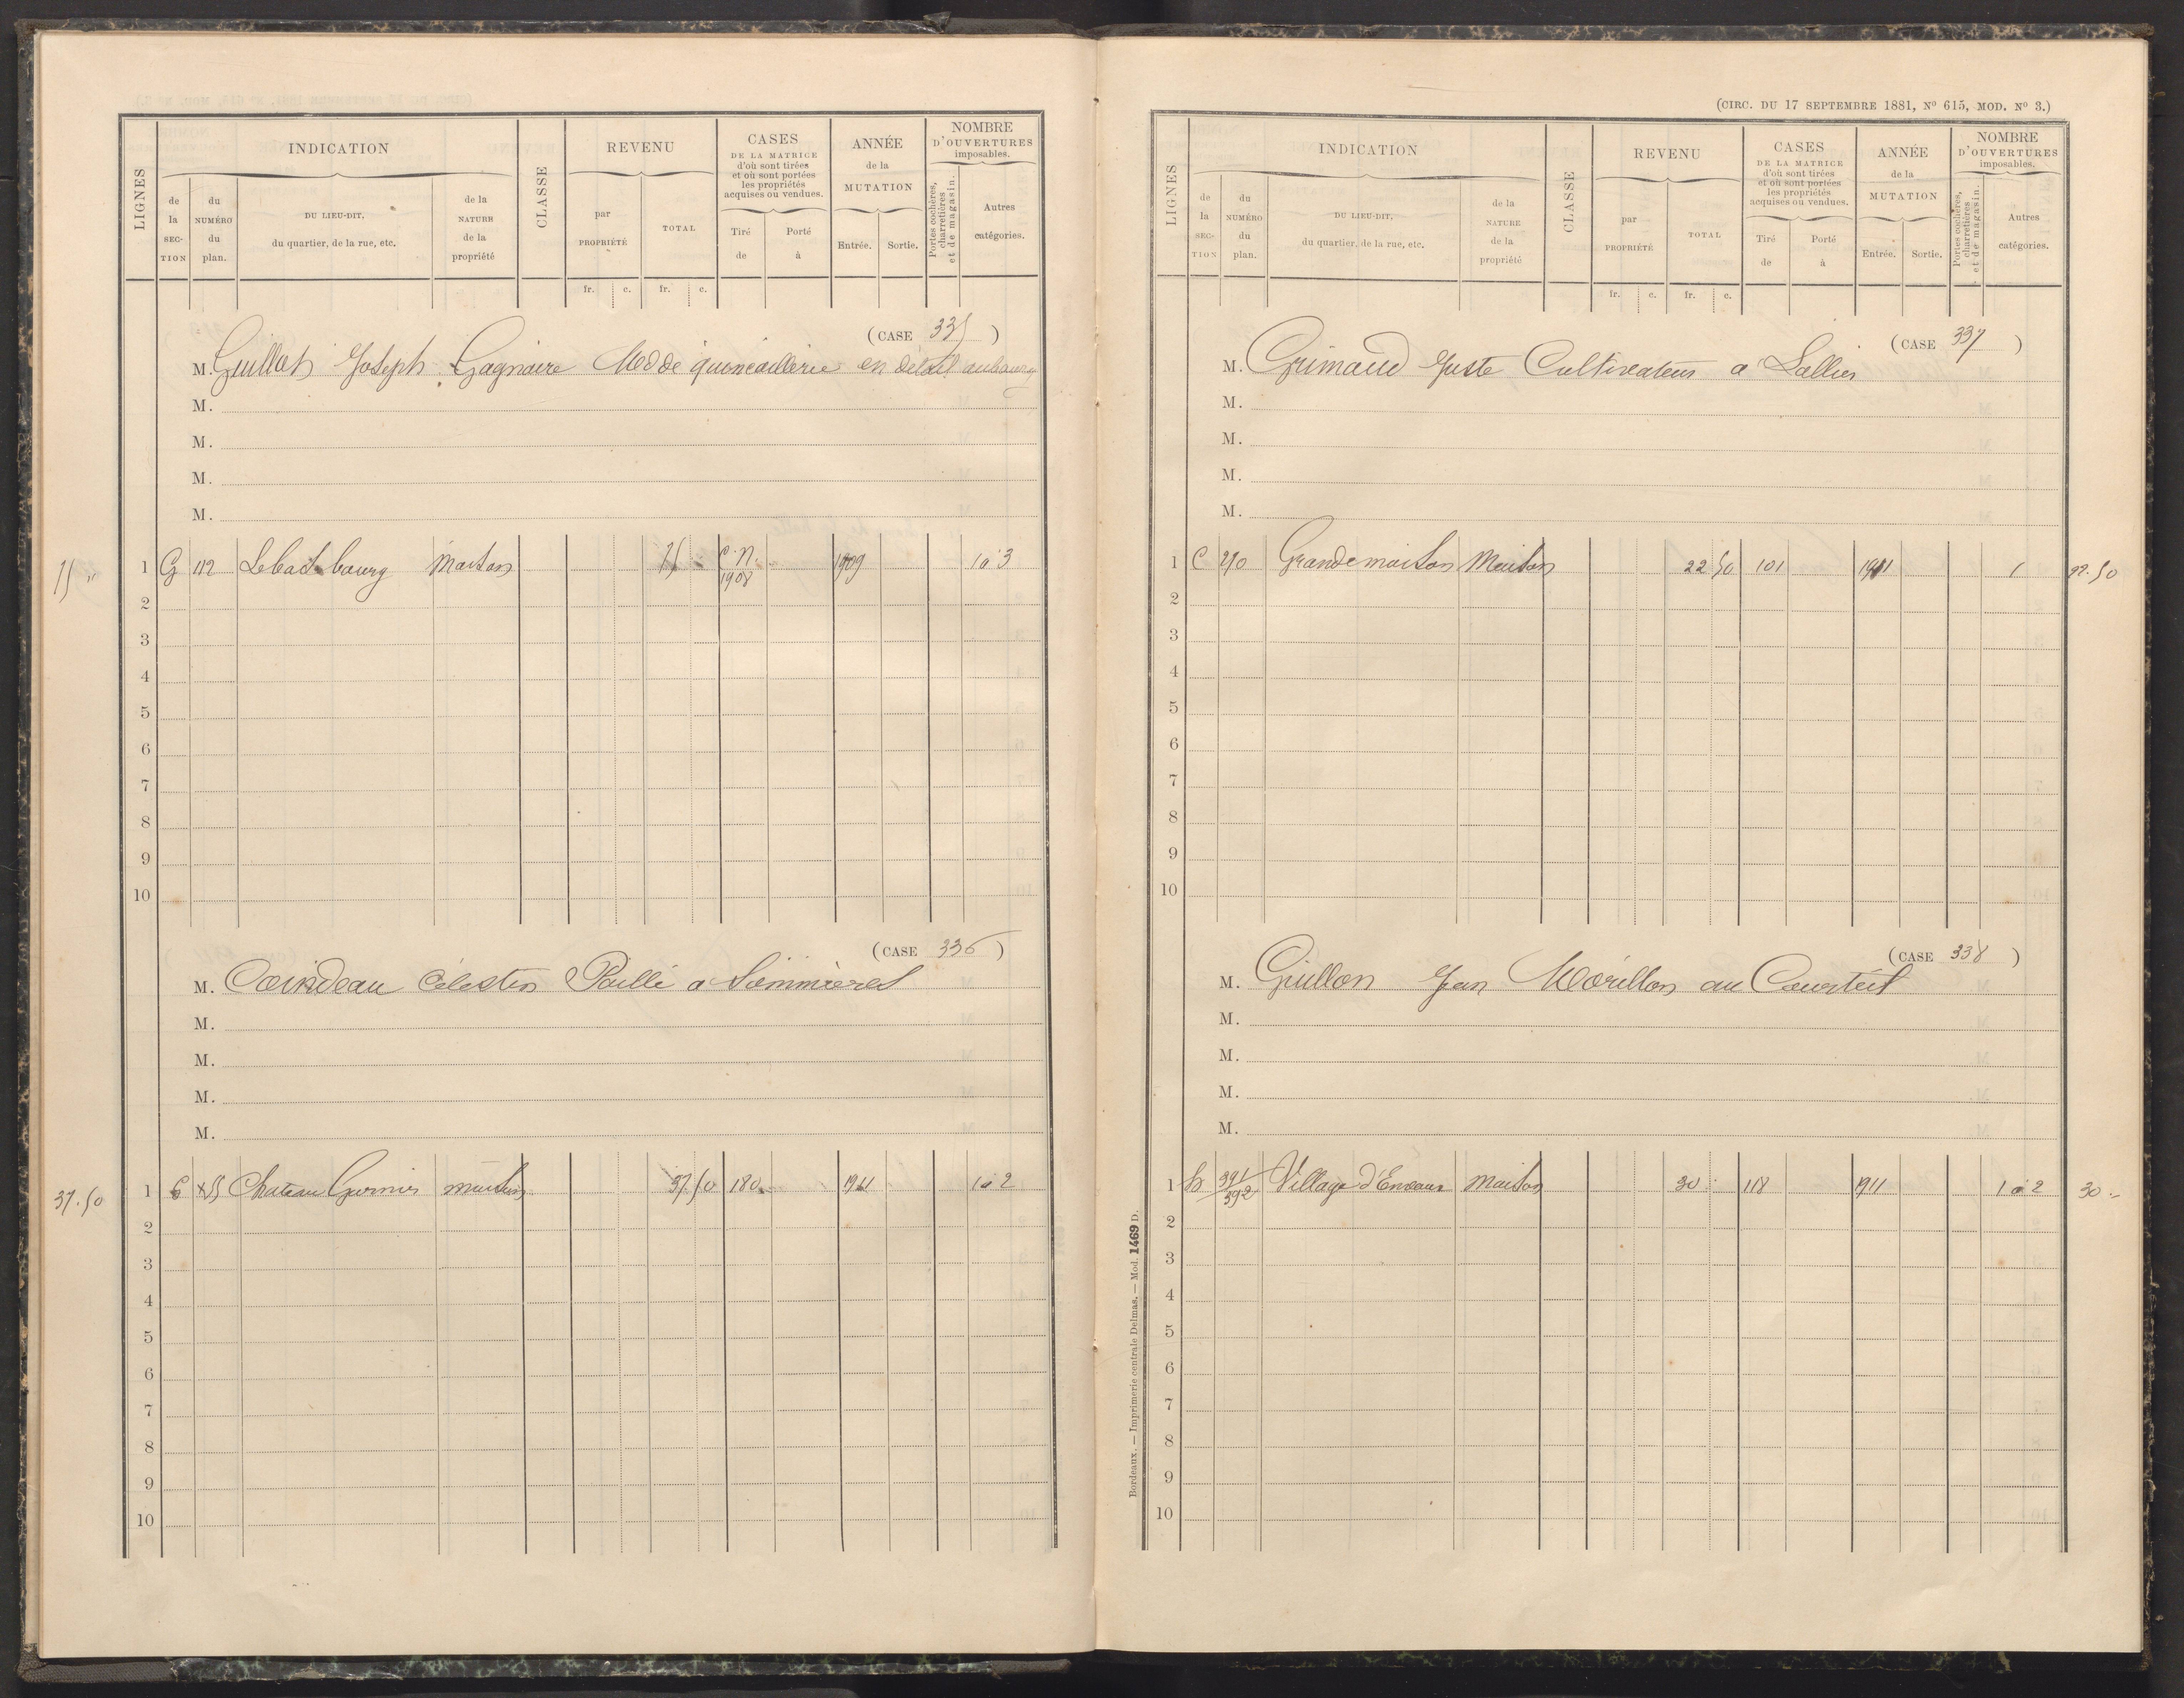 INDICATION
LIGNES
de la SECTION
du NUMÉRO du plan.
DU LIEU-DIT, du quartier, de la rue, etc.
de la NATURE de la propriété
CLASSE
REVENU
par PROPRIÉTÉ
TOTAL
CASES DE LA MATRICE d'où sont tirées et où sont portées les propriétés acquises ou vendues.
Tiré de
Porté à
ANNÉE de la MUTATION
Entrée.
Sortie.
NOMBRE D'OUVERTURES imposables.
Portes cochères, charretières et de magasin.
Autres catégories.
fr. c. fr. c.
(CASE 335)
M. Guillot Joseph Gagnaire Md de quincaillerie en détail au bourg
M.
M.
M.
M.
75 "
1 G 112 Le bas bourg Maison 75 C.N. 1908 1909 1 à 3
2
3
4
5
6
7
8
9
10
(CASE 336)
M. Célestin Paillé a Sommières
M.
M.
M.
M.
37.50
1 Chateau Garnier maison 37 50 180 1911 1 à 2
2
3
4
5
6
7
8
9
10
(CIRC. DU 17 SEPTEMBRE 1881, Nº 615, MOD. Nº 3.)
LIGNES
INDICATION
de la SECTION
du NUMÉRO du plan.
DU LIEU-DIT, du quartier, de la rue, etc.
de la NATURE de la propriété
CLASSE
REVENU
par PROPRIÉTÉ
TOTAL
CASES DE LA MATRICE d'où sont tirées et où sont portées les propriétés acquises ou vendues.
Tiré de
Porté à
ANNÉE de la MUTATION
Entrée.
Sortie.
NOMBRE D'OUVERTURES imposables.
Portes cochères, charretières et de magasin.
Autres catégories.
fr. c. fr. c.
(CASE 337)
M. Grimaud Juste Cultivateur a Lallier
M.
M.
M.
M.
1 C 210 Grandemaison Maison 22 50 101 1911 1 22.50
2
3
4
5
6
7
8
9
10
(CASE 338)
M. Guillon Jean Morillon au Courteil
M.
M.
M.
M.
1 h 391/392 Village d'Envaux Maison 30 118 1911 1 à 2 30 "
2
3
4
5
6
7
8
9
10
Bordeaux. — Imprimerie centrale Delmas. — Mod. 1469 D.